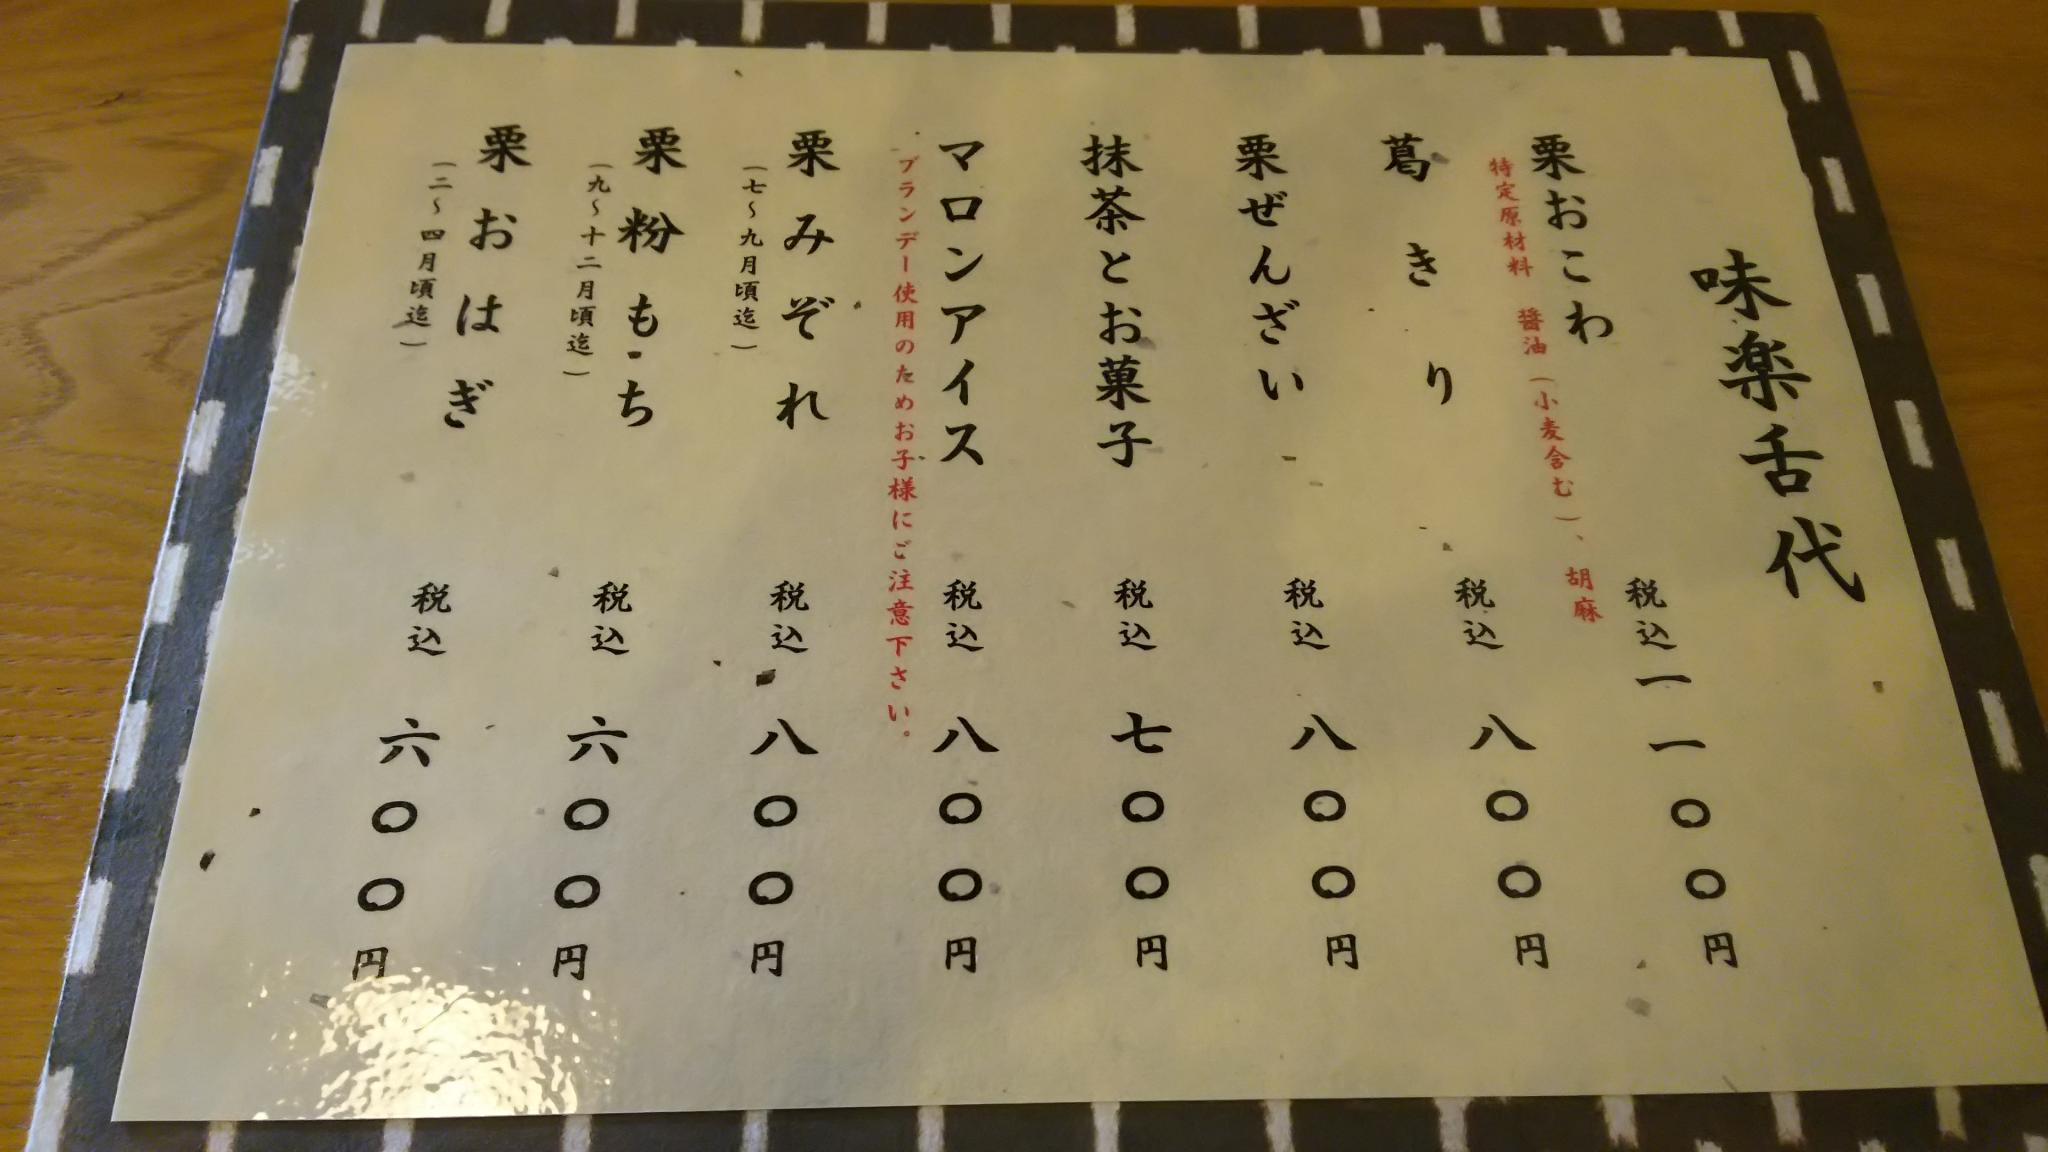 味楽舌代
栗おこわ 税込一一〇〇円
特定原材料 醤油（小麦含む）、胡麻
葛きり 税込八〇〇円
栗ぜんざい 税込八〇〇円
抹茶とお菓子 税込七〇〇円
マロンアイス 税込八〇〇円
ブランデー使用のためお子様にご注意下さい。
栗みぞれ 税込八〇〇円
（七〜九月頃迄）
栗粉もち 税込六〇〇円
（九〜十二月頃迄）
栗おはぎ 税込六〇〇円
（二〜四月頃迄）